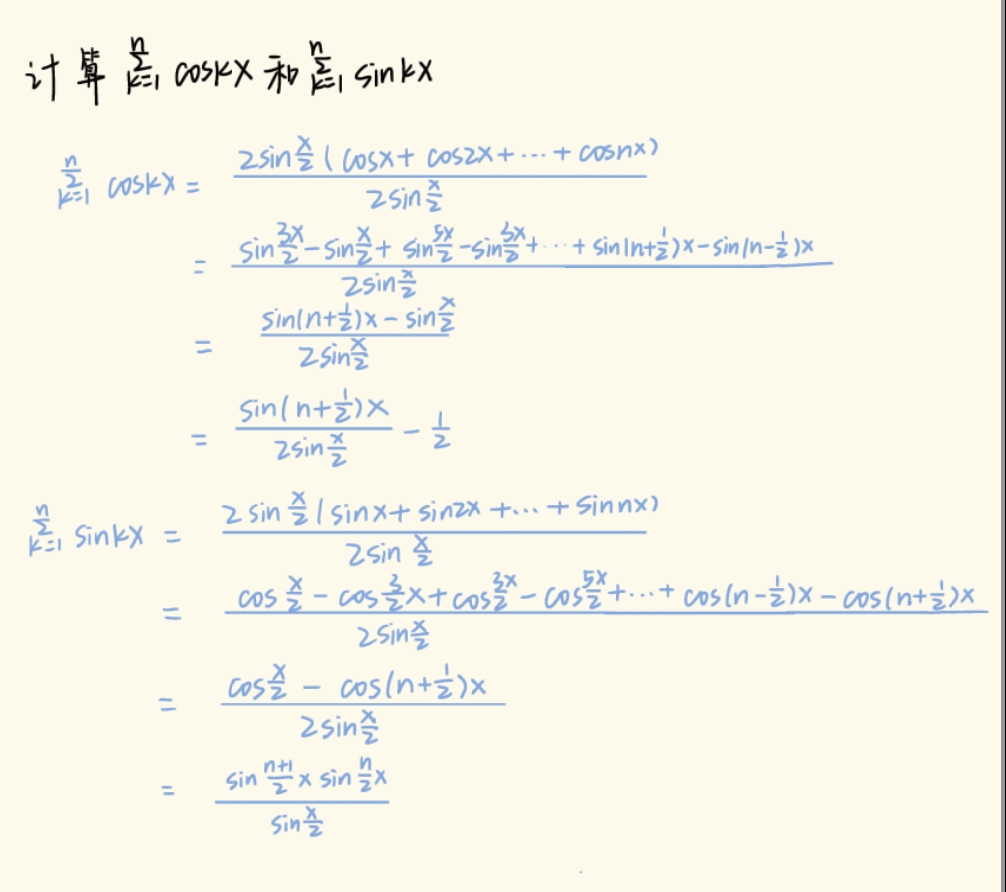 计算 $\sum_{k=1}^{n} \cos kx$ 和 $\sum_{k=1}^{n} \sin kx$
$\sum_{k=1}^{n} \cos kx = \frac{2\sin\frac{x}{2}(\cos x + \cos 2x + \cdots + \cos nx)}{2\sin\frac{x}{2}}$
$= \frac{\sin\frac{3x}{2} - \sin\frac{x}{2} + \sin\frac{5x}{2} - \sin\frac{3x}{2} + \cdots + \sin(n+\frac{1}{2})x - \sin(n-\frac{1}{2})x}{2\sin\frac{x}{2}}$
$= \frac{\sin(n+\frac{1}{2})x - \sin\frac{x}{2}}{2\sin\frac{x}{2}}$
$= \frac{\sin(n+\frac{1}{2})x}{2\sin\frac{x}{2}} - \frac{1}{2}$
$\sum_{k=1}^{n} \sin kx = \frac{2\sin\frac{x}{2}(\sin x + \sin 2x + \cdots + \sin nx)}{2\sin\frac{x}{2}}$
$= \frac{\cos\frac{x}{2} - \cos\frac{3}{2}x + \cos\frac{3x}{2} - \cos\frac{5x}{2} + \cdots + \cos(n-\frac{1}{2})x - \cos(n+\frac{1}{2})x}{2\sin\frac{x}{2}}$
$= \frac{\cos\frac{x}{2} - \cos(n+\frac{1}{2})x}{2\sin\frac{x}{2}}$
$= \frac{\sin\frac{n+1}{2}x \sin\frac{n}{2}x}{\sin\frac{x}{2}}$